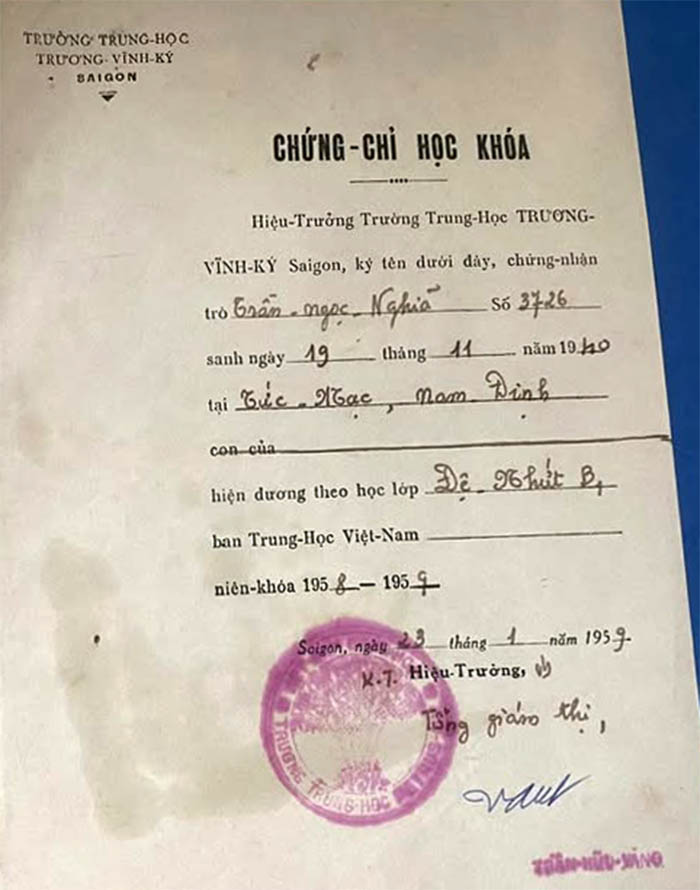 TRƯỜNG TRUNG-HỌC
TRƯƠNG-VĨNH-KÝ
SAIGON
CHỨNG-CHỈ HỌC KHÓA
Hiệu-Trưởng Trường Trung-Học TRƯƠNG-
VĨNH-KÝ Saigon, ký tên dưới đây, chứng-nhận
trò Trần-ngọc-Nghiã Số 3726
sanh ngày 19 tháng 11 năm 1940
tại Tức-Mạc, Nam Định
con của
hiện dương theo học lớp Đệ-Nhứt B1
ban Trung-Học Việt-Nam
niên-khóa 1958-1959
Saigon, ngày 23 tháng 1 năm 1959
K.T. Hiệu-Trưởng,
Tổng giám thị,
TRƯỜNG TRUNG-HỌC